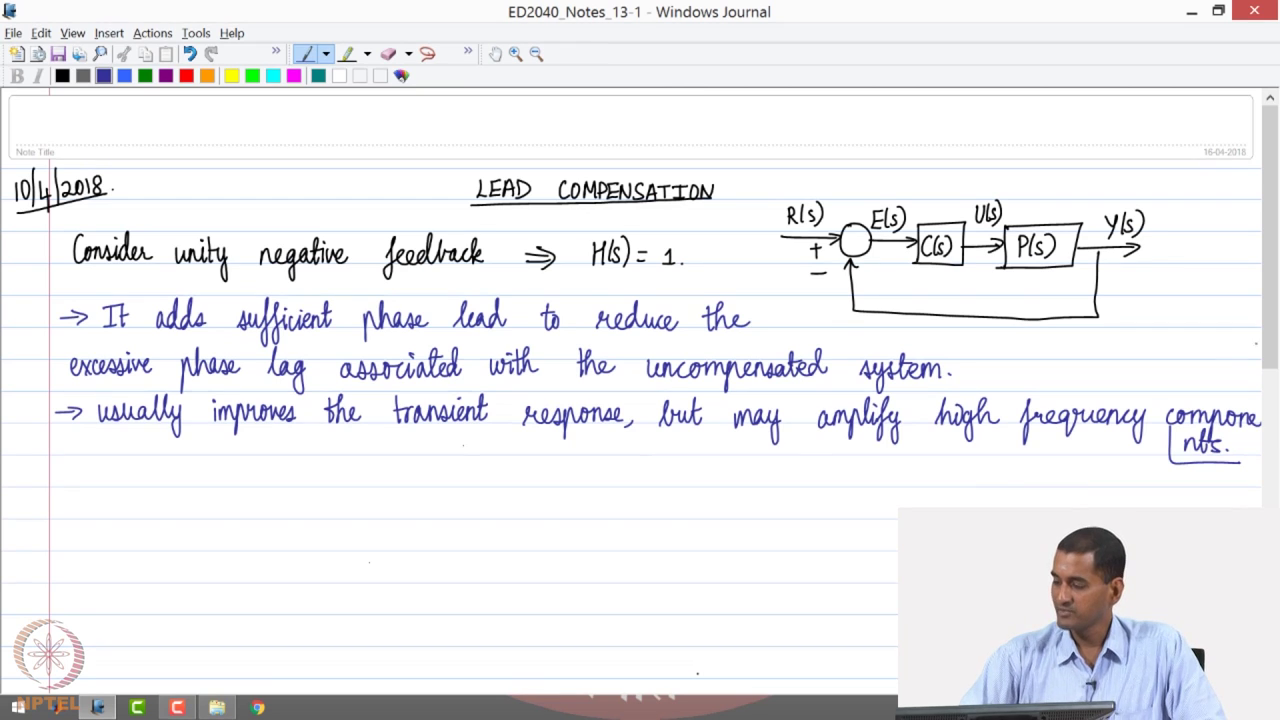 ED2040_Notes_13-1 - Windows Journal
File Edit View Insert Actions Tools Help
B I
Note Title
16-04-2018
10/4/2018.
LEAD COMPENSATION
Consider unity negative feedback ⇒ H(s) = 1.
R(s) E(s) U(s) Y(s)
+ C(s) P(s)
−
→ It adds sufficient phase lead to reduce the
excessive phase lag associated with the uncompensated system.
→ usually improves the transient response, but may amplify high frequency compone
nts.
NPTEL